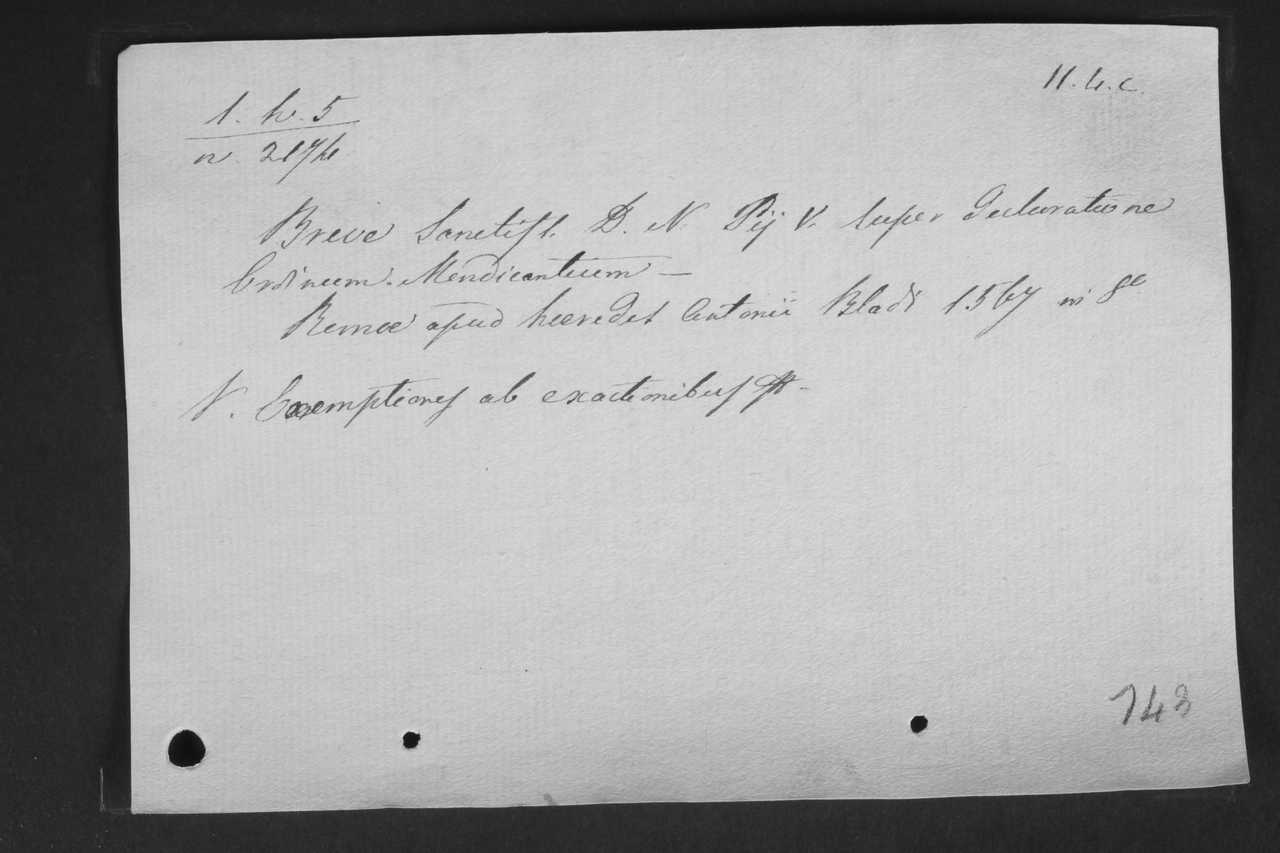 II. 4. c.
1. h. 5
n. 2174
Breve Sanctiss. D. N. Pij V. super declaratione
Ordinum Mendicantium —
Romae apud haeredes Antonii Bladi 1567 in 8º
V. Exemptiones ab exactionibus
743